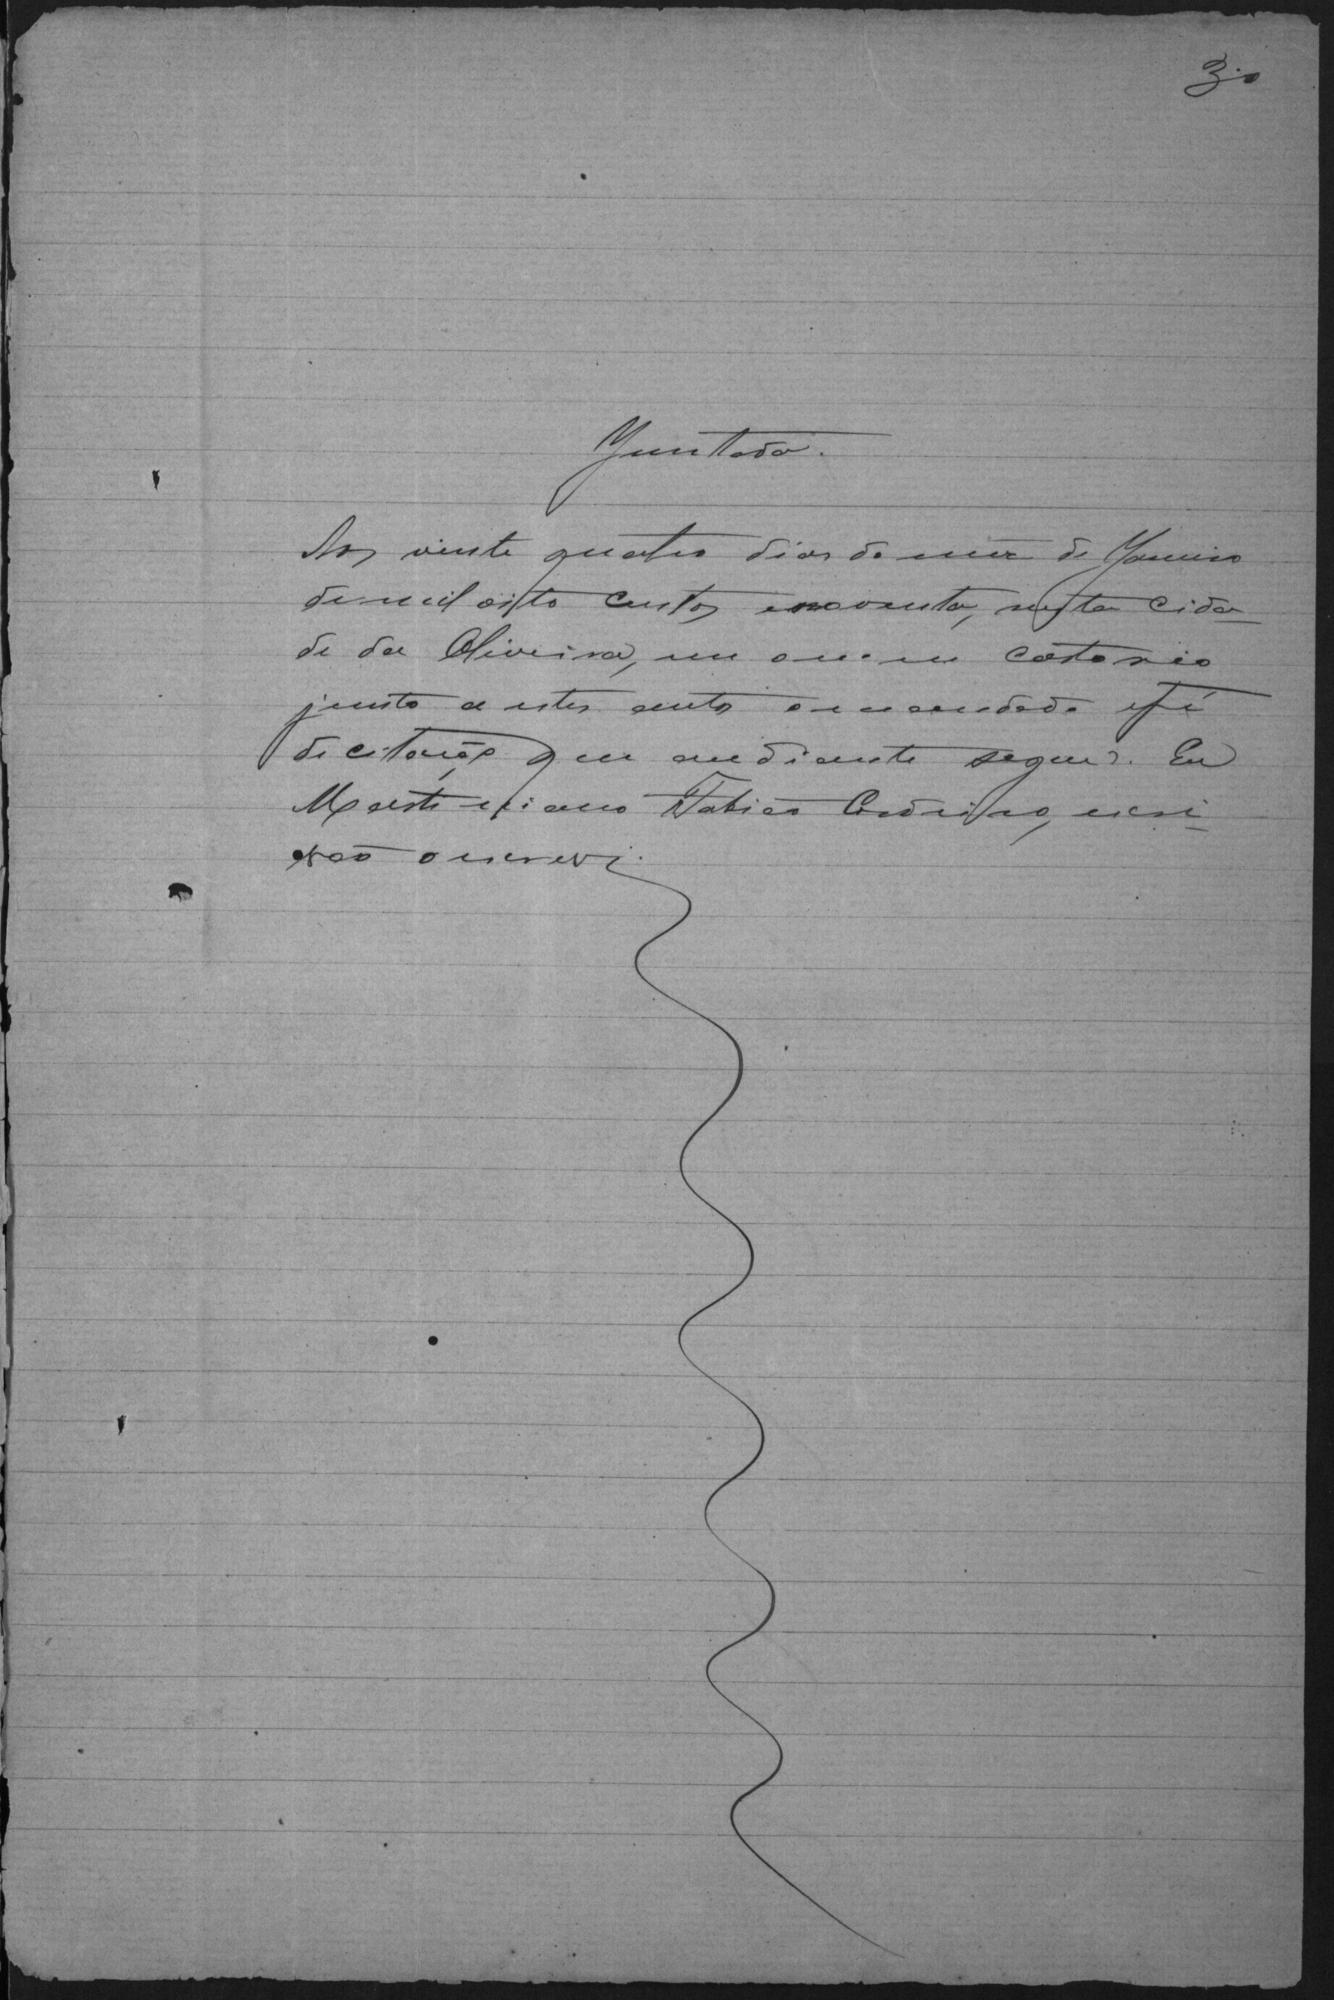 3.o
Juntada.
Aos vinte quatro dias do mez de Janeiro
de mil oito centos e noventa, nesta cida-
de da Oliveira, em o meu cartorio
junto a estes autos o mandado e fé
de citação que an diante segue. Eu
Martiniano Fabião Cordeiro, escri-
vão o escrevi.